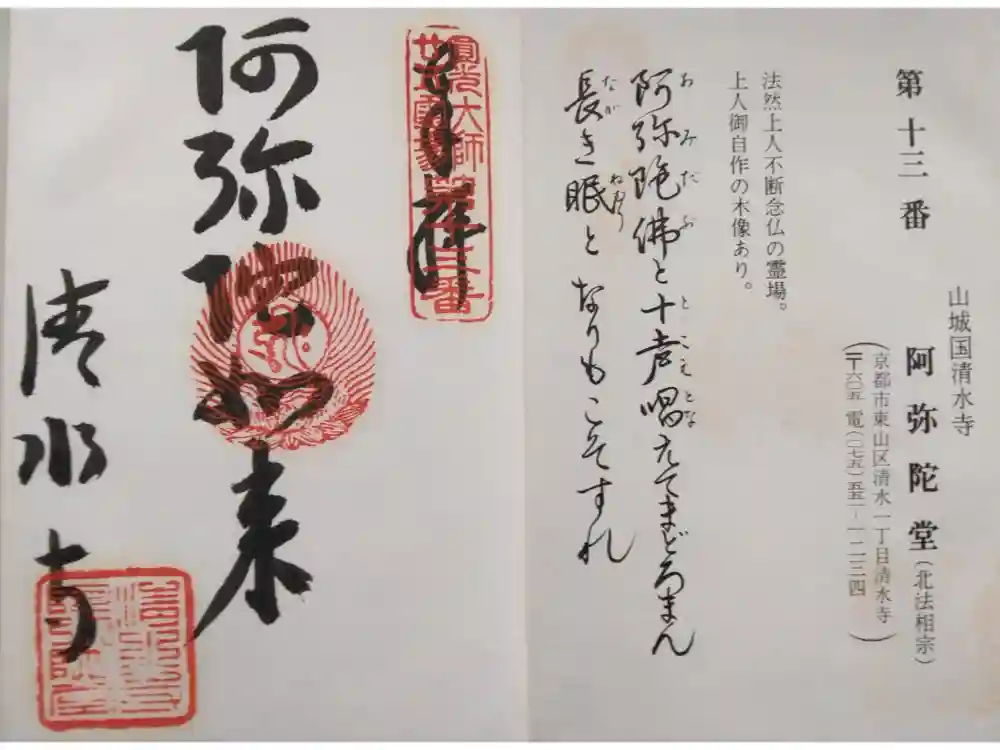 第十三番
山城国清水寺
阿弥陀堂(北法相宗)
(京都市東山区清水一丁目清水寺
〒六〇五 電(〇七五)五五一-一二三四)
法然上人不断念仏の霊場。
上人御自作の木像あり。
阿弥陀佛と十声唱えてまどろまん
あみだぶ とこえとな
長き眠と なりもこそすれ
なが ねむり
圓光大師
廿五霊場第十三番
奉拝
阿弥陀如来
清水寺